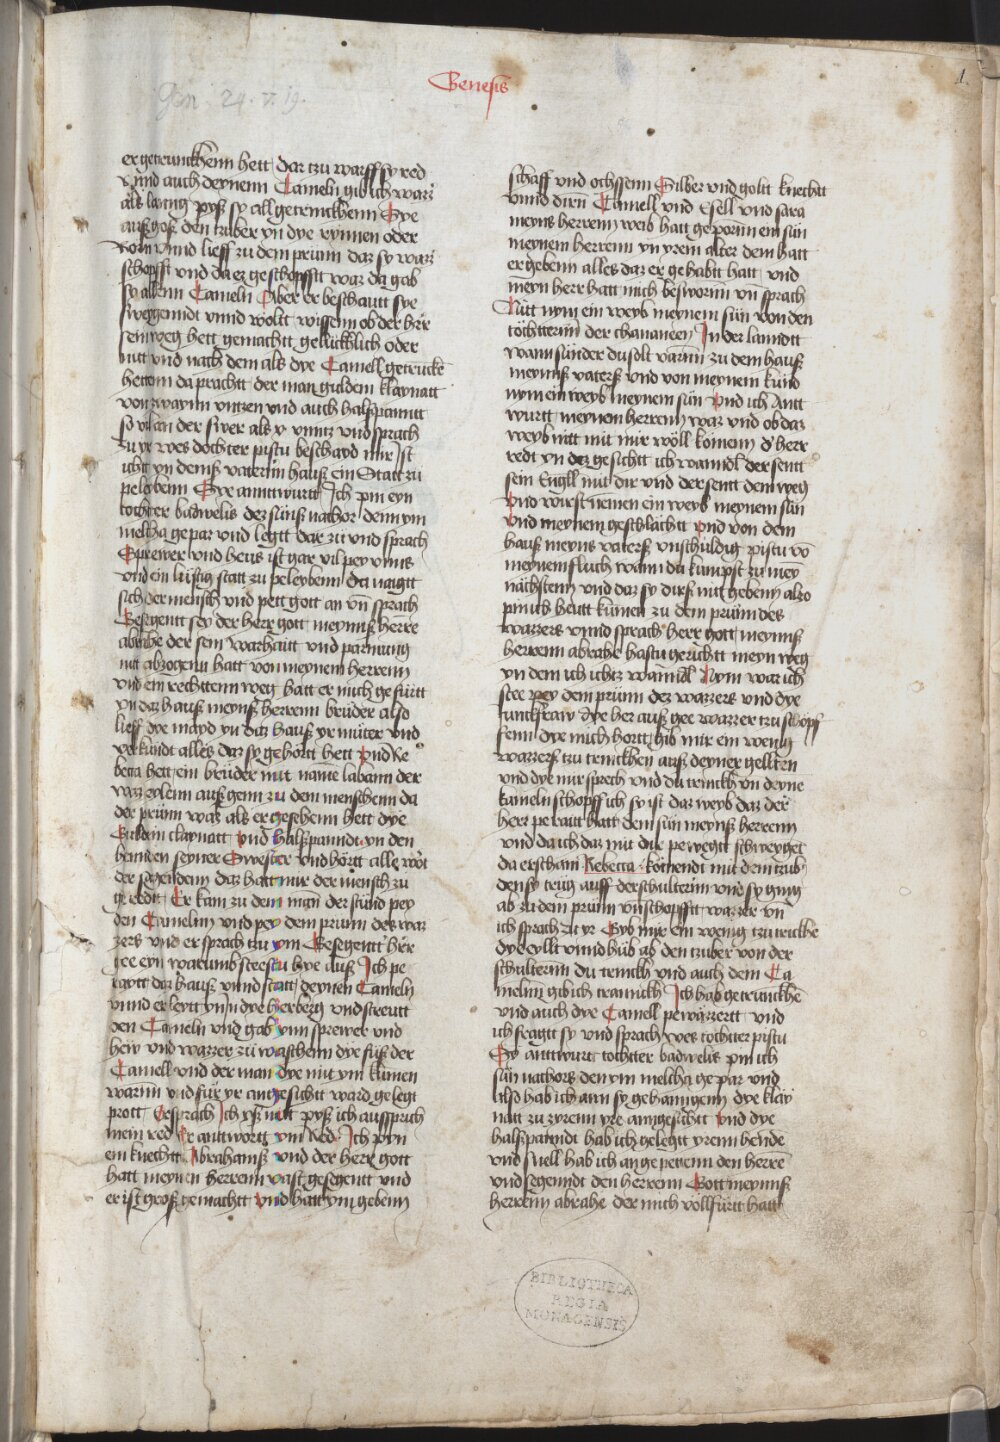 Genesis
1.
Gen. 24. v. 19.
er getrunckhenn hett dar tzu warff sy red
vnnd auch deynenn Cameln gib ich waʒʒer
als lanng pyß sy all getrinckhenn Sye
außgoß den tzuber yn dye rynnen oder
vnnd lieff zu dem prünn daz sy waʒʒer
schöpfft vnd da eʒ geschöpfft waz da gab
sy allenn Cameln Aber er beschautt sye
sweygenndt vnnd wolt wissenn ob der herr
sein weg hett gemachtt gelücklich oder
nitt vnd nach dem als dye Camell getruncke
hettenn da prachtt der man guldem klaynatt
von zwaynn vntzen vnd auch halßpanntt
so vil an der swer als x vnntz vnd sprach
zu yr wes dochter pistu beschayd mir Jst
icht yn deinß vaterinn hauß ein Statt zu
peleybenn Sye anntwurtt Jch pin eyn
tochter badwelis dez sünß nachor denn ym
melcha gepar vnd legtt dar zu vnd sprach
Sprewer vnd hews ist gar vil pey vnns
vnd ein lüstig statt zu peleybenn da naigtt
sich der mensch vnd pett gott an vnd sprach
Gesegentt sey der herr gott meynnß herre
abrahe der sein warhaitt vnd parmung
nit abzogenn hatt von meynem herrenn
vnd ein rechttenn weg hatt er mich gefürtt
yn daz hauß meynß herrenn brüder also
lieff dye mayd yn daz hauß yr müter vnd
verkündt alles daz sy gehörtt hett vnd Re
becca hett ein brüder mit name labann der
waz eylenn auß genn zu dem menschenn da
der prünn waz als er gesehenn hett dye
Guldein claynatt vnd halßpanndt yn den
hennden seyner Swester vnd hörtt alle wort
der sagendenn daz hatt mir der mensch zu
geredtt Er kam zu dem man der stünd pey
den Camelnn vnd pey dem prünn des waz
zers vnd er sprach tzu ym Gesegentt herr
gee eyn warumb steestu hye auß Jch pe
raytt daz hauß vnnd statt deynen Cameln
vnnd er leytt yn yn dye herberg vnd streutt
den Cameln vnd gab ynn sprewer vnd
hew vnd wazzer zu waschenn dye füß der
Camell vnd der man dye mit ym kumen
warnn vnd für yr angesichtt ward gelegt
prott Er sprach Jch yß nitt pyß ich aussprich
mein red Er antwortt ym Red Jch pyn
ein knechtt Abrahamß vnd der herr gott
hatt meynen herrenn vast gesegentt vnd
er ist groß gemachtt vnd hatt ym gebenn
schaff vnd ochssenn Silber vnd goltt knecht
vnnd dirn Camell vnd Esell vnd sara
meyns herrenn weib hatt geporn ein sün
meynem herrenn yn yrem alter dem hatt
er gebenn alles daz er gehabtt hatt vnd
meyn herr hatt mich besworn vnd sprach
Nitt nym ein weyb meynem sün von den
töchtternn der chananeen Jn der lanndtt
wann sünder du solt varnn zu dem hauß
meynnß vaterß vnd von meynem künd
nym ein weyb meynem sün vnd ich Antt
wurtt meynem herrenn war vnd ob daz
weyb nitt mit mir wöll komenn der herr
redt yn dez gesichtt ich wanndl der sentt
sein Engll mit dir vnd der sentt dem weg
vnd wirst nemen ein weyb meynem sün
vnd meynem geschlächtt vnd von dem
hauß meyns vaterß vnschuldig pistu vo
meynem fluch wann du kumpst zu mey
nächstenn vnd daz sy dirß nitt gebenn also
pin ich heutt kumen zu dem prünn des
wazzers vnnd sprach herr gott meynnß
herrenn abrahe hastu gerichtt meyn weg
yn dem ich ichtz wanndl Nym war ich
stee pey dem prünn dez wazzers vnd dye
junckfraw dye her auß gee wazzer tzu schöpf
fenn dye mich hortt gib mir ein wenig
wazzerß tzu trinckhen auß deyner gellten
vnd dye mir sprech vnd du trinckh vn deyne
kameln schöpff ich sy ist daz weyb daz der
herr peraitt hatt dem sün meynß herrenn
vnd da ich daz mit dir pewegtt schweyget
da erschain Rebecca kömendt mit dem tzub
den sy trüg auff der schulternn vnd sy ging
ab zu dem prünn vnd schopfft wazzer vnd
ich sprach zu yr Gyb mir ein wenig tzu trincke
dye eyllt vnnd hüb ab den tzuber von der
schulternn du trinckh vnd auch dein Ca
melnn gib ich tranckh Jch hab getrunckhe
vnd auch dye Camell pewäzzertt vnd
ich fragtt sy vnd sprach wes töchtter pistu
Sy anttwurtt tochter badwelis pin ich
sün nachors den ym melcha gepar vnd
also hab ich ann sy gehanngenn dye klay
natt zu zyrenn yre anngesichtt vnd dye
halßpanndt hab ich gelegtt yrenn hende
vnd snell hab ich angepetenn den herre
vnd segenndt den herrenn Gott meynnß
herrenn abrahe der mich vollfürtt hatt
BIBLIOTHECA
REGIA
MONACENSIS